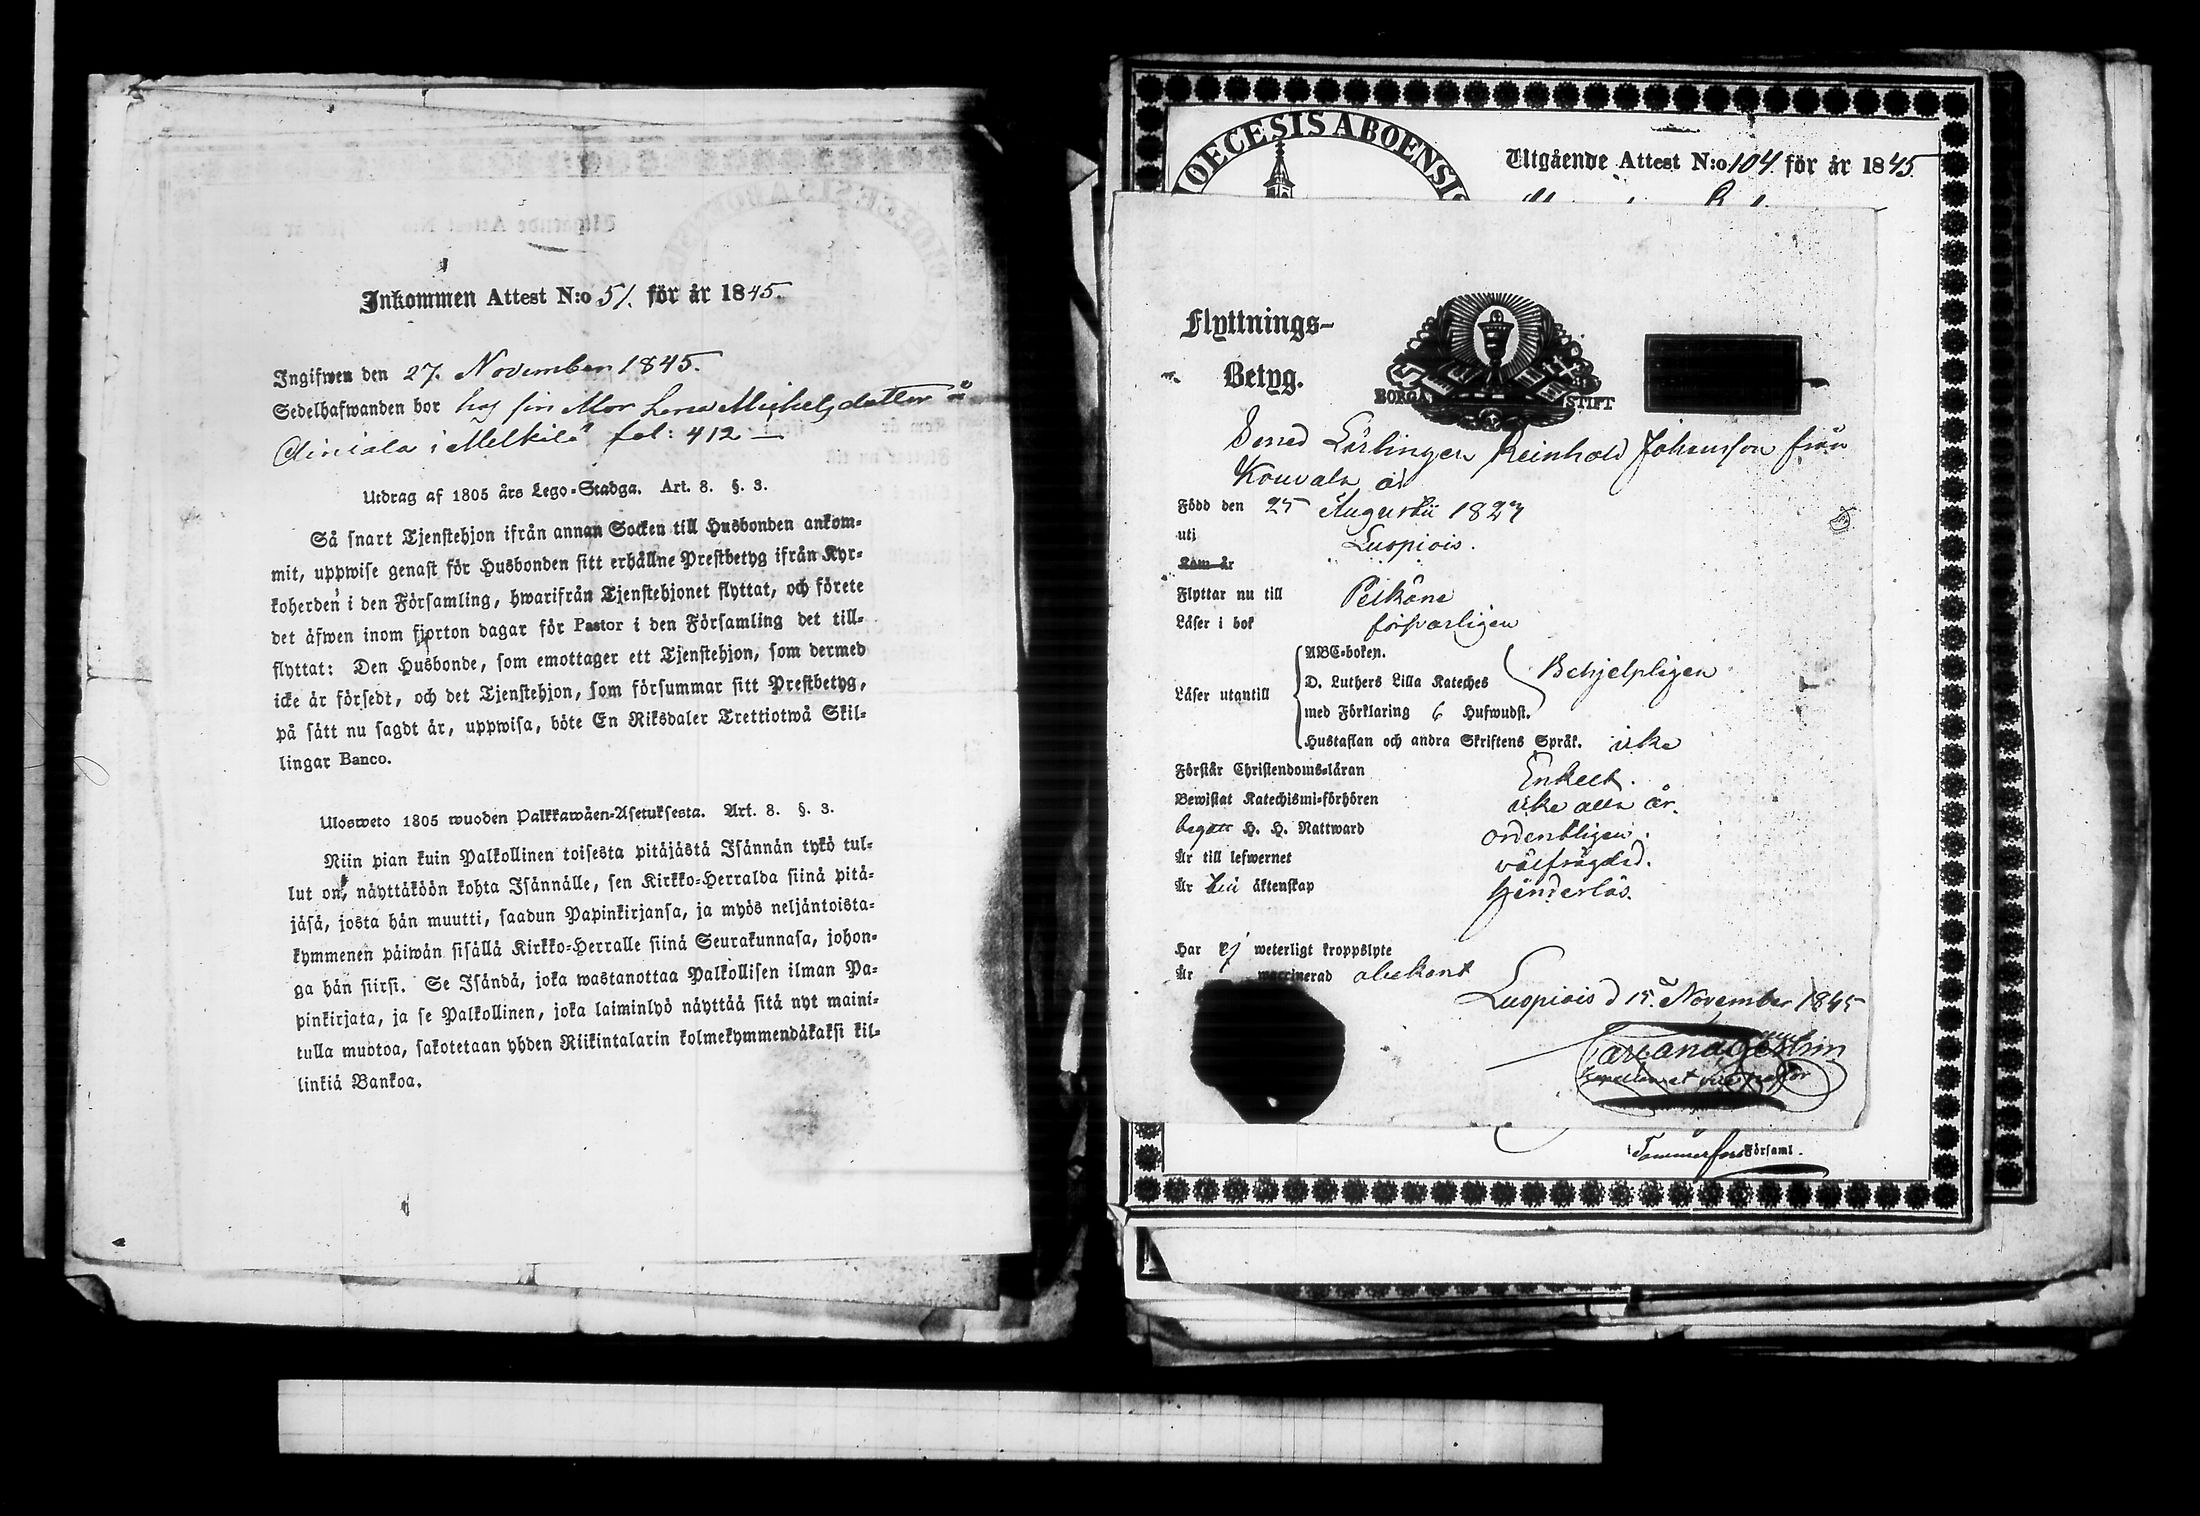 Inkommen Attest N:o 51. för år 1845.
Ingifwen den 27. November 1845.
Sedelhafwanden bor hos sin Mor Lena Michelsdotter å
i Melkilä fol: 412 —
Utdrag af 1805 års Lego-Stadga. Art. 8. §. 3.
Så snart Tjenstehjon ifrån annan Socken till Husbonden ankom-
mit, uppwise genast för Husbonden sitt erhållne Prestbetyg ifrån Kyr-
koherden i den Församling, hwarifrån Tjenstehjonet flyttat, och förete
det äfwen inom fjorton dagar för Pastor i den Församling det till-
flyttat: Den Husbonde, som emottager ett Tjenstehjon, som dermed
icke är försedt, och det Tjenstehjon, som försummar sitt Prestbetyg,
på sätt nu sagdt är, uppwisa, böte En Riksdaler Trettiotwå Skil-
lingar Banco.
Ulosweto 1805 wuoden Palkkawäen-Asetuksesta. Art. 8. §. 3.
Niin pian kuin Palkollinen toisesta pitäjästä Isännän tykö tul-
lut on, näyttäköön kohta Isännälle, sen Kirkko-Herralda siinä pitä-
jäsä, josta hän muutti, saadun Papinkirjansa, ja myös neljäntoista-
kymmenen päiwän sisällä Kirkko-Herralle siinä Seurakunnasa, johon-
ga hän siirsi. Se Isändä, joka wastanottaa Palkollisen ilman Pa-
pinkirjata, ja se Palkollinen, joka laiminlyö näyttää sitä nyt maini-
tulla muotoa, sakotetaan yhden Riikintalarin kolmekymmendäkaksi kil-
linkiä Bankoa.
DIOECESIS ABOENSIS
Utgående Attest N:o 104 för år 1845
Flyttnings-
Betyg.
BORGÅ STIFT
Lärlingen Reinhold Johansson från
Kouvala är
Född den 25 Augustii 1827
uti Luopiois.
Kom år
Flyttar nu till Pelkäne
Läser i bok försvarligen
Läser utantill
ABC-boken.
D. Luthers Lilla Kateches
med Förklaring 6 Hufwudst.
Behjelpligen
Hustaflan och andra Skriftens Språk. icke
Förstår Christendoms-läran Enkelt.
Bewistat Katechismi-förhören icke alla år.
begått H. H. Nattward ordentligen.
Är till lefwernet välfrägdad.
Är till äktenskap hinderlös.
Har ej weterligt kroppslyte
Är waccinerad obekant
Luopiois d 15. November 1845
Tammerfors Församl.